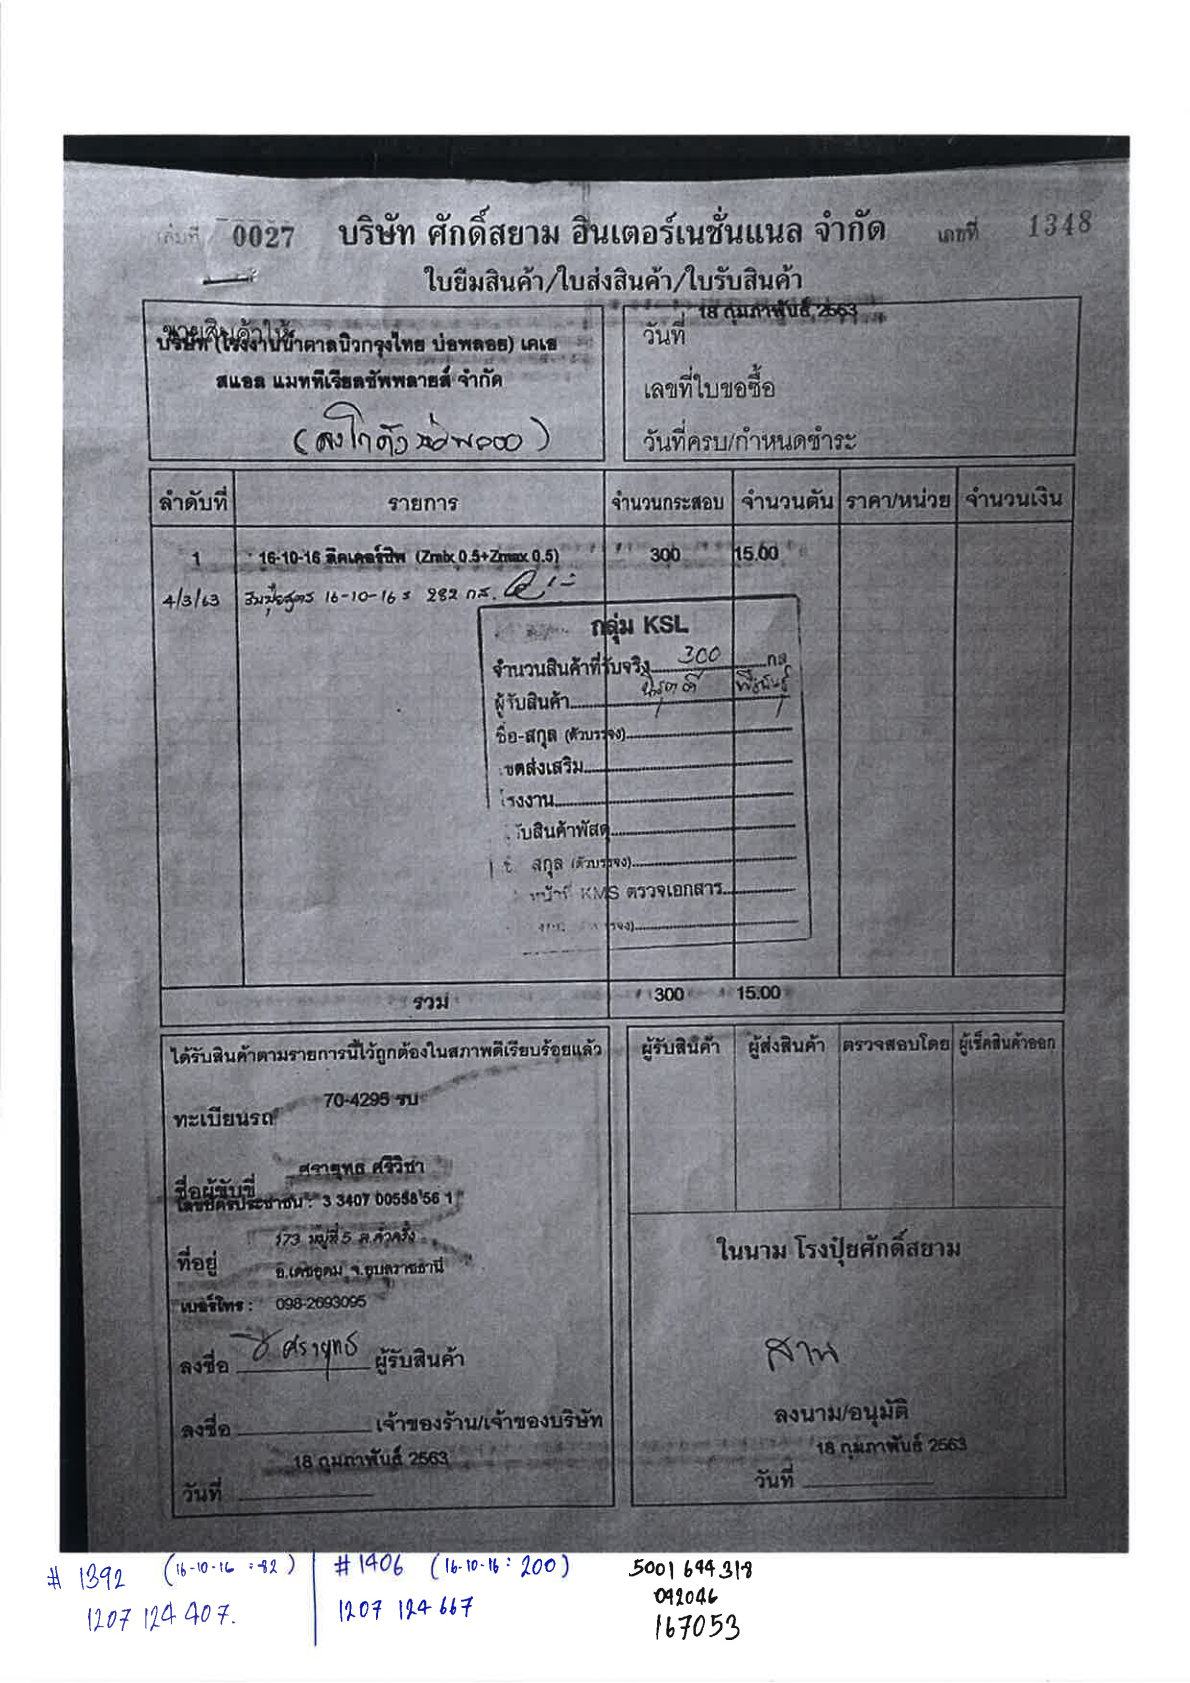 เล่มที่ 0027 บริษัท ศักดิ์สยาม อินเตอร์เนชั่นแนล จำกัด เลขที่ 1348
ใบยืมสินค้า/ใบส่งสินค้า/ใบรับสินค้า
ขายสินค้าให้
บริษัท (โรงงานน้ำตาลนิวกรุงไทย บ่อพลอย) เคเอ
สแอล แมททีเรียลซัพพลายส์ จำกัด
18 กุมภาพันธ์ 2563
วันที่
เลขที่ใบขอซื้อ
วันที่ครบ/กำหนดชำระ
ลำดับที่ รายการ จำนวนกระสอบ จำนวนตัน ราคา/หน่วย จำนวนเงิน
1 16-10-16 คิคเคอร์ชิพ (Zmix 0.5+Zmax 0.5) 300 15.00
4/3/63 16-10-16 = 282 กส.
กลุ่ม KSL
จำนวนสินค้าที่รับจริง 300 กส
ผู้รับสินค้า
ชื่อ-สกุล (ตัวบรรจง)
เขตส่งเสริม
โรงงาน
รับสินค้าพัสดุ
สกุล (ตัวบรรจง)
หน้าที่ KMS ตรวจเอกสาร
รวม 300 15.00
ได้รับสินค้าตามรายการนี้ไว้ถูกต้องในสภาพดีเรียบร้อยแล้ว
ทะเบียนรถ 70-4295 รบ
ชื่อผู้ขับขี่ ศรายุทธ ศรีวิชา
เลขบัตรประชาชน : 3 3407 00558 56 1
ที่อยู่ 173 หมู่ที่ 5
อ.เดชอุดม จ.อุบลราชธานี
เบอร์โทร : 098-2693095
ลงชื่อ ศรายุทธ ผู้รับสินค้า
ลงชื่อ เจ้าของร้าน/เจ้าของบริษัท
18 กุมภาพันธ์ 2563
วันที่
ผู้รับสินค้า ผู้ส่งสินค้า ตรวจสอบโดย ผู้เช็คสินค้าออก
ในนาม โรงปุ๋ยศักดิ์สยาม
ลงนาม/อนุมัติ
18 กุมภาพันธ์ 2563
วันที่
# 1392 (16-10-16 : 82)
1207 124 407.
# 1406 (16-10-16 : 200)
1207 124 667
5001 644 318
092046
167053